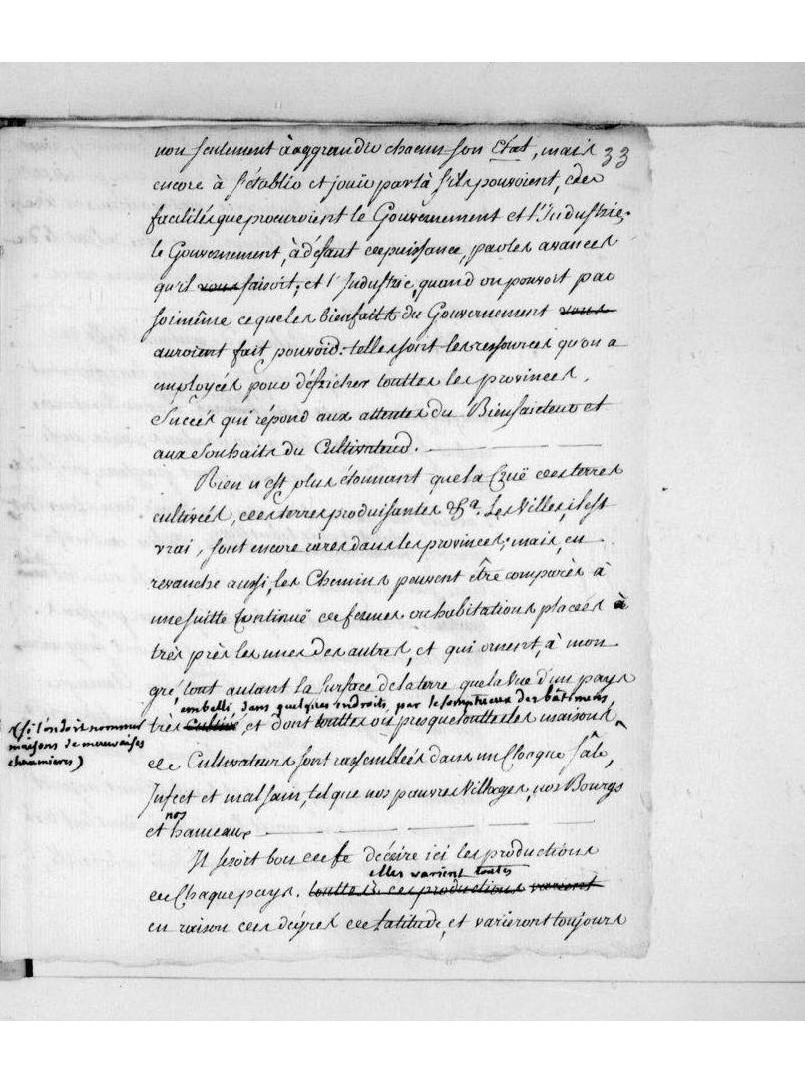 33
non seulement à aggrandir chacun son Etat, mais
encore à s'établir et jouir par là s'ils pouvoient, des
facilités que procuroient le Gouvernement et l'Industrie;
le Gouvernement, à défaut de puissance, par les avances
qu'il vous faisoit; et l'Industrie, quand on pouvoit par
soi même ce que les bienfaits du Gouvernement vous
auroient fait pouvoir: telles sont les ressources qu'on a
employées pour défricher touttes les provinces,
Succés qui répond aux attentes du Bienfaicteur et
aux Souhaits du Cultivateur.
Rien n'est plus étonnant que la Cruë des terres
cultivées, des terres produisantes &a. Les Villes, il est
vrai, sont encore rares dans les provinces; mais, en
revanche aussi, les Chemins peuvent être comparés à
une suitte Continuë de fermes ou habitations placées à
très près les unes des autres, et qui ornent, à mon
gré, tout autant la Surface de la terre que la vüe d'un pays
embelli, dans quelques endroits, par le somptueux des bâtimens,
très Cultivé et dont touttes ou presque touttes les maisons
(si l'on doit nommer
maisons de mauvaises
chaumieres)
de Cultivateurs sont rassemblées dans un Cloaque sâle,
Infect et mal sain, tel que nos pauvres Villages, nos Bourgs
nos
et hameaux
Il seroit bon de décrire ici les productions
elles varient toutes
de Chaque pays. touttes ces productions varient
en raison des dégrés de Latitude, et varieront toujours